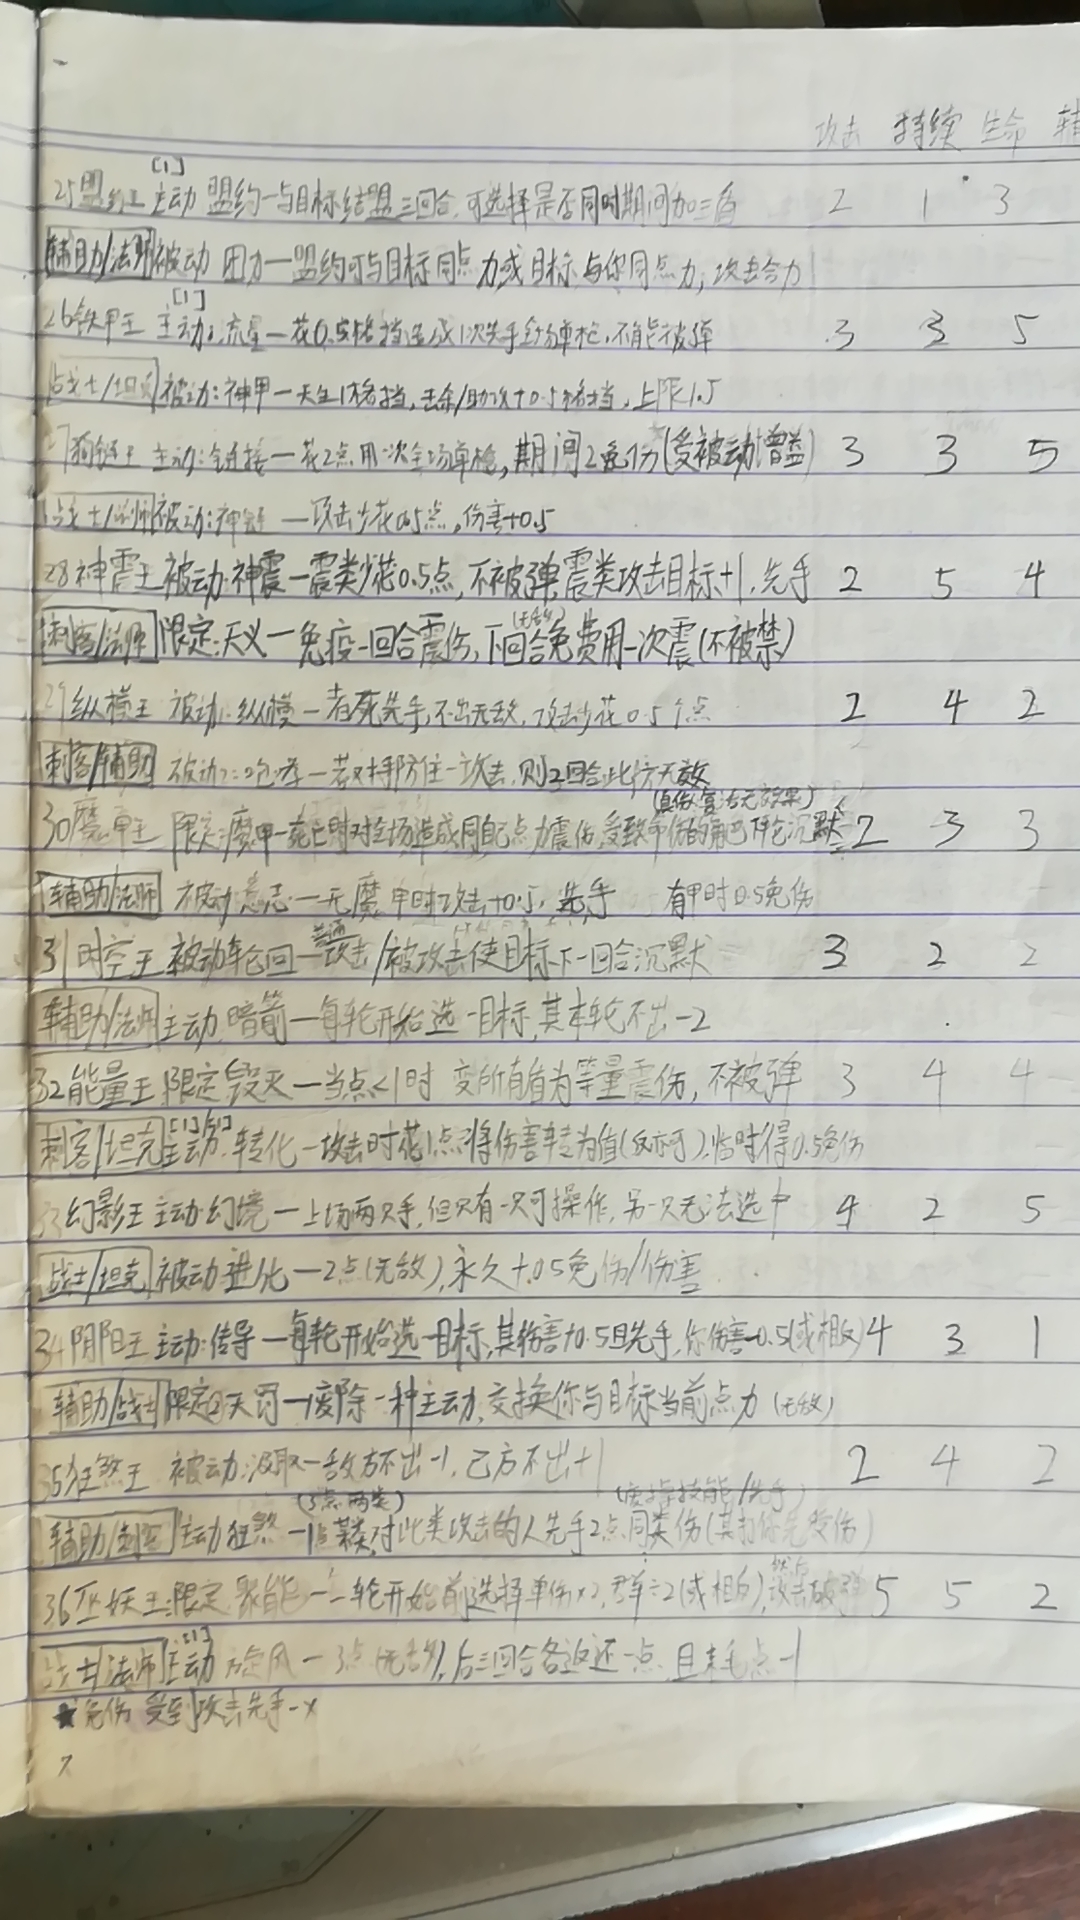 攻击 持续 生命 辅
[1]
25盟约王 主动 盟约一与目标结盟三回合,可选择是否同时期间加三盾 2 1 3
辅助/法师 被动 团力一盟约可与目标同点力或目标与你同点力,攻击合力
[1]
26铁甲王 主动:流星一花0.5格挡造成1次先手全场单枪,不能被弹 3 3 5
战士/坦克 被动:神甲一天生1格挡,击杀/助攻+0.5格挡,上限1.5
27狗链王 主动:链接一花2点用一次全场单枪,期间2免伤(受被动增益) 3 3 5
战士/法师 被动:神链一攻击少花0.5点,伤害+0.5
28神震王 被动:神震一震类少花0.5点,不被弹,震类攻击目标+1,先手 2 5 4
(无敌)
刺客/法师 限定:天义一免疫一回合震伤,下回合免费用一次震(不被禁)
29纵横王 被动:纵横一若死先手,不出无敌,攻击少花0.5个点 2 4 2
刺客/辅助 被动2:咆哮一若对手防住一次攻击,则2回合此防无效
(真伤,复活无效果)
30魔甲王 限定:魔甲一死亡时对全场造成同自己点力震伤,受致命伤的角色下轮沉默 2 3 3
辅助/法师 被动:意志一无魔甲时攻击+0.5,先手 有甲时0.5免伤
普通
31时空王 被动轮回一攻击/被攻击使目标下一回合沉默 3 2 2
辅助/法师 主动:暗箭一每轮开始选一目标,其本轮不出-2
32能量王 限定:毁灭一当点<1时 变所有盾为等量震伤,不被弹 3 4 4
刺客/坦克 主动:转化一攻击时花1点将伤害转为值(反亦可),临时得0.5免伤
33幻影王 主动:幻境一上场两只手,但只有一只可操作,另一只无法选中 4 2 5
战士/坦克 被动:进化一2点(无敌),永久+0.5免伤/伤害
34阴阳王 主动:传导一每轮开始选一目标,其伤害+0.5且先手,你伤害-0.5(或相反) 4 3 1
辅助/战士 限定2天罚一废除一种主动,交换你与目标当前点力(无敌)
35狂煞王 被动:汲取一敌方不出-1,己方不出+1 2 4 2
(3点两类)
辅助/刺客 主动:狂煞一1点某类,对此类攻击的人先手2点同类伤(其打你免受伤)
36巫妖王:限定:聚能一一轮开始前选择单伤×2,群÷2(或相反),攻击破弹 5 5 2
[1]
战士/法师 主动 旋风一3点(无敌),后三回合各返还一点,且末毛点-1
★免伤 受到攻击先手-x